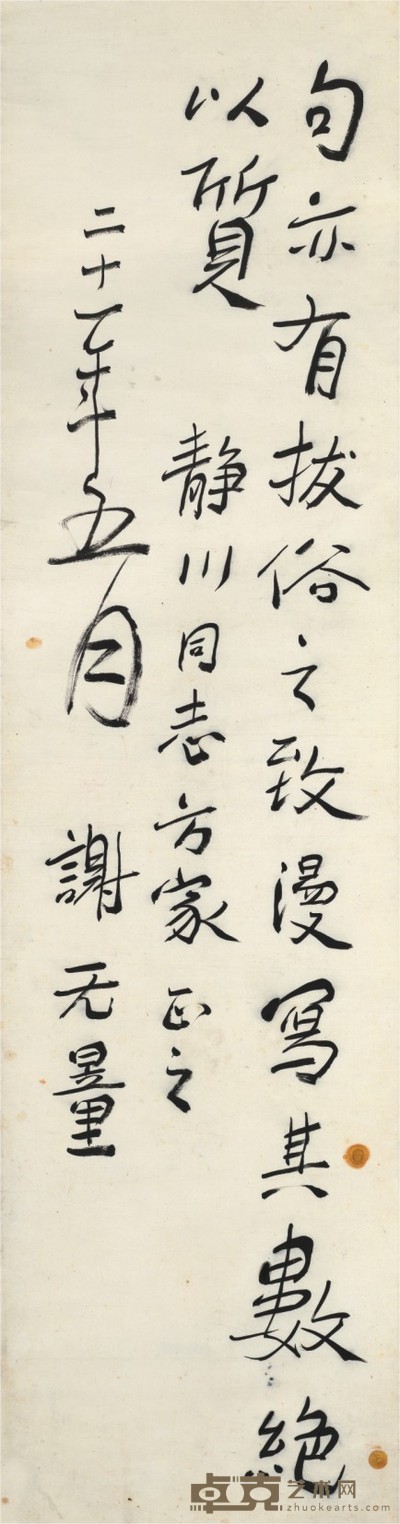 句亦有拔俗之致漫寫其數絶
以質 静川同志方家正之
二十一年五月 謝无量
卓克艺术网
zhuokearts.com